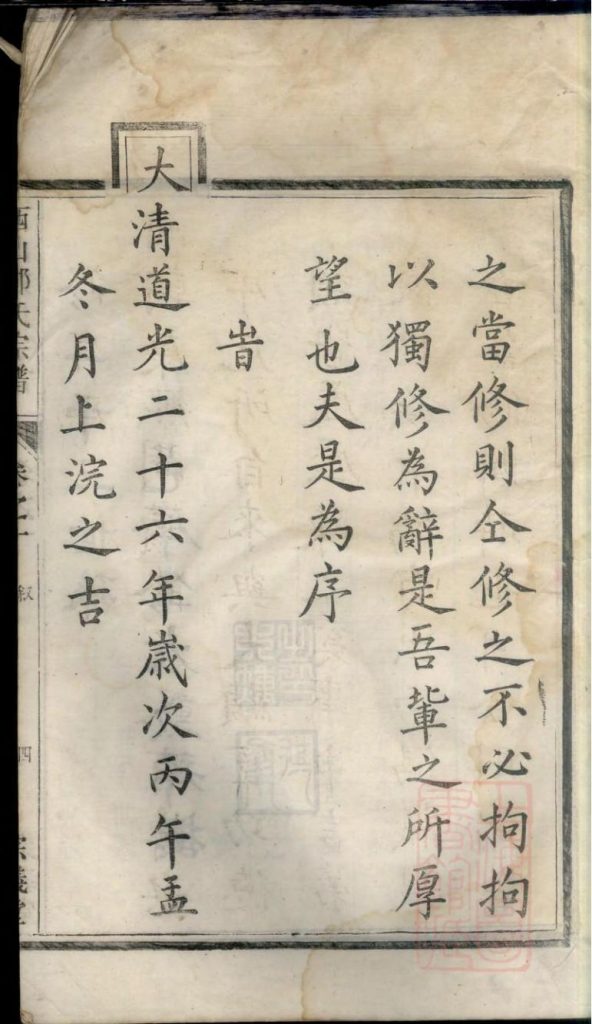 之當修則仝修之不必拘拘
以獨修為辭是吾輩之所厚
望也夫是為序
旹
大清道光二十六年嵗次丙午孟
冬月上浣之吉
氏宗譜
卷之一
叙
四